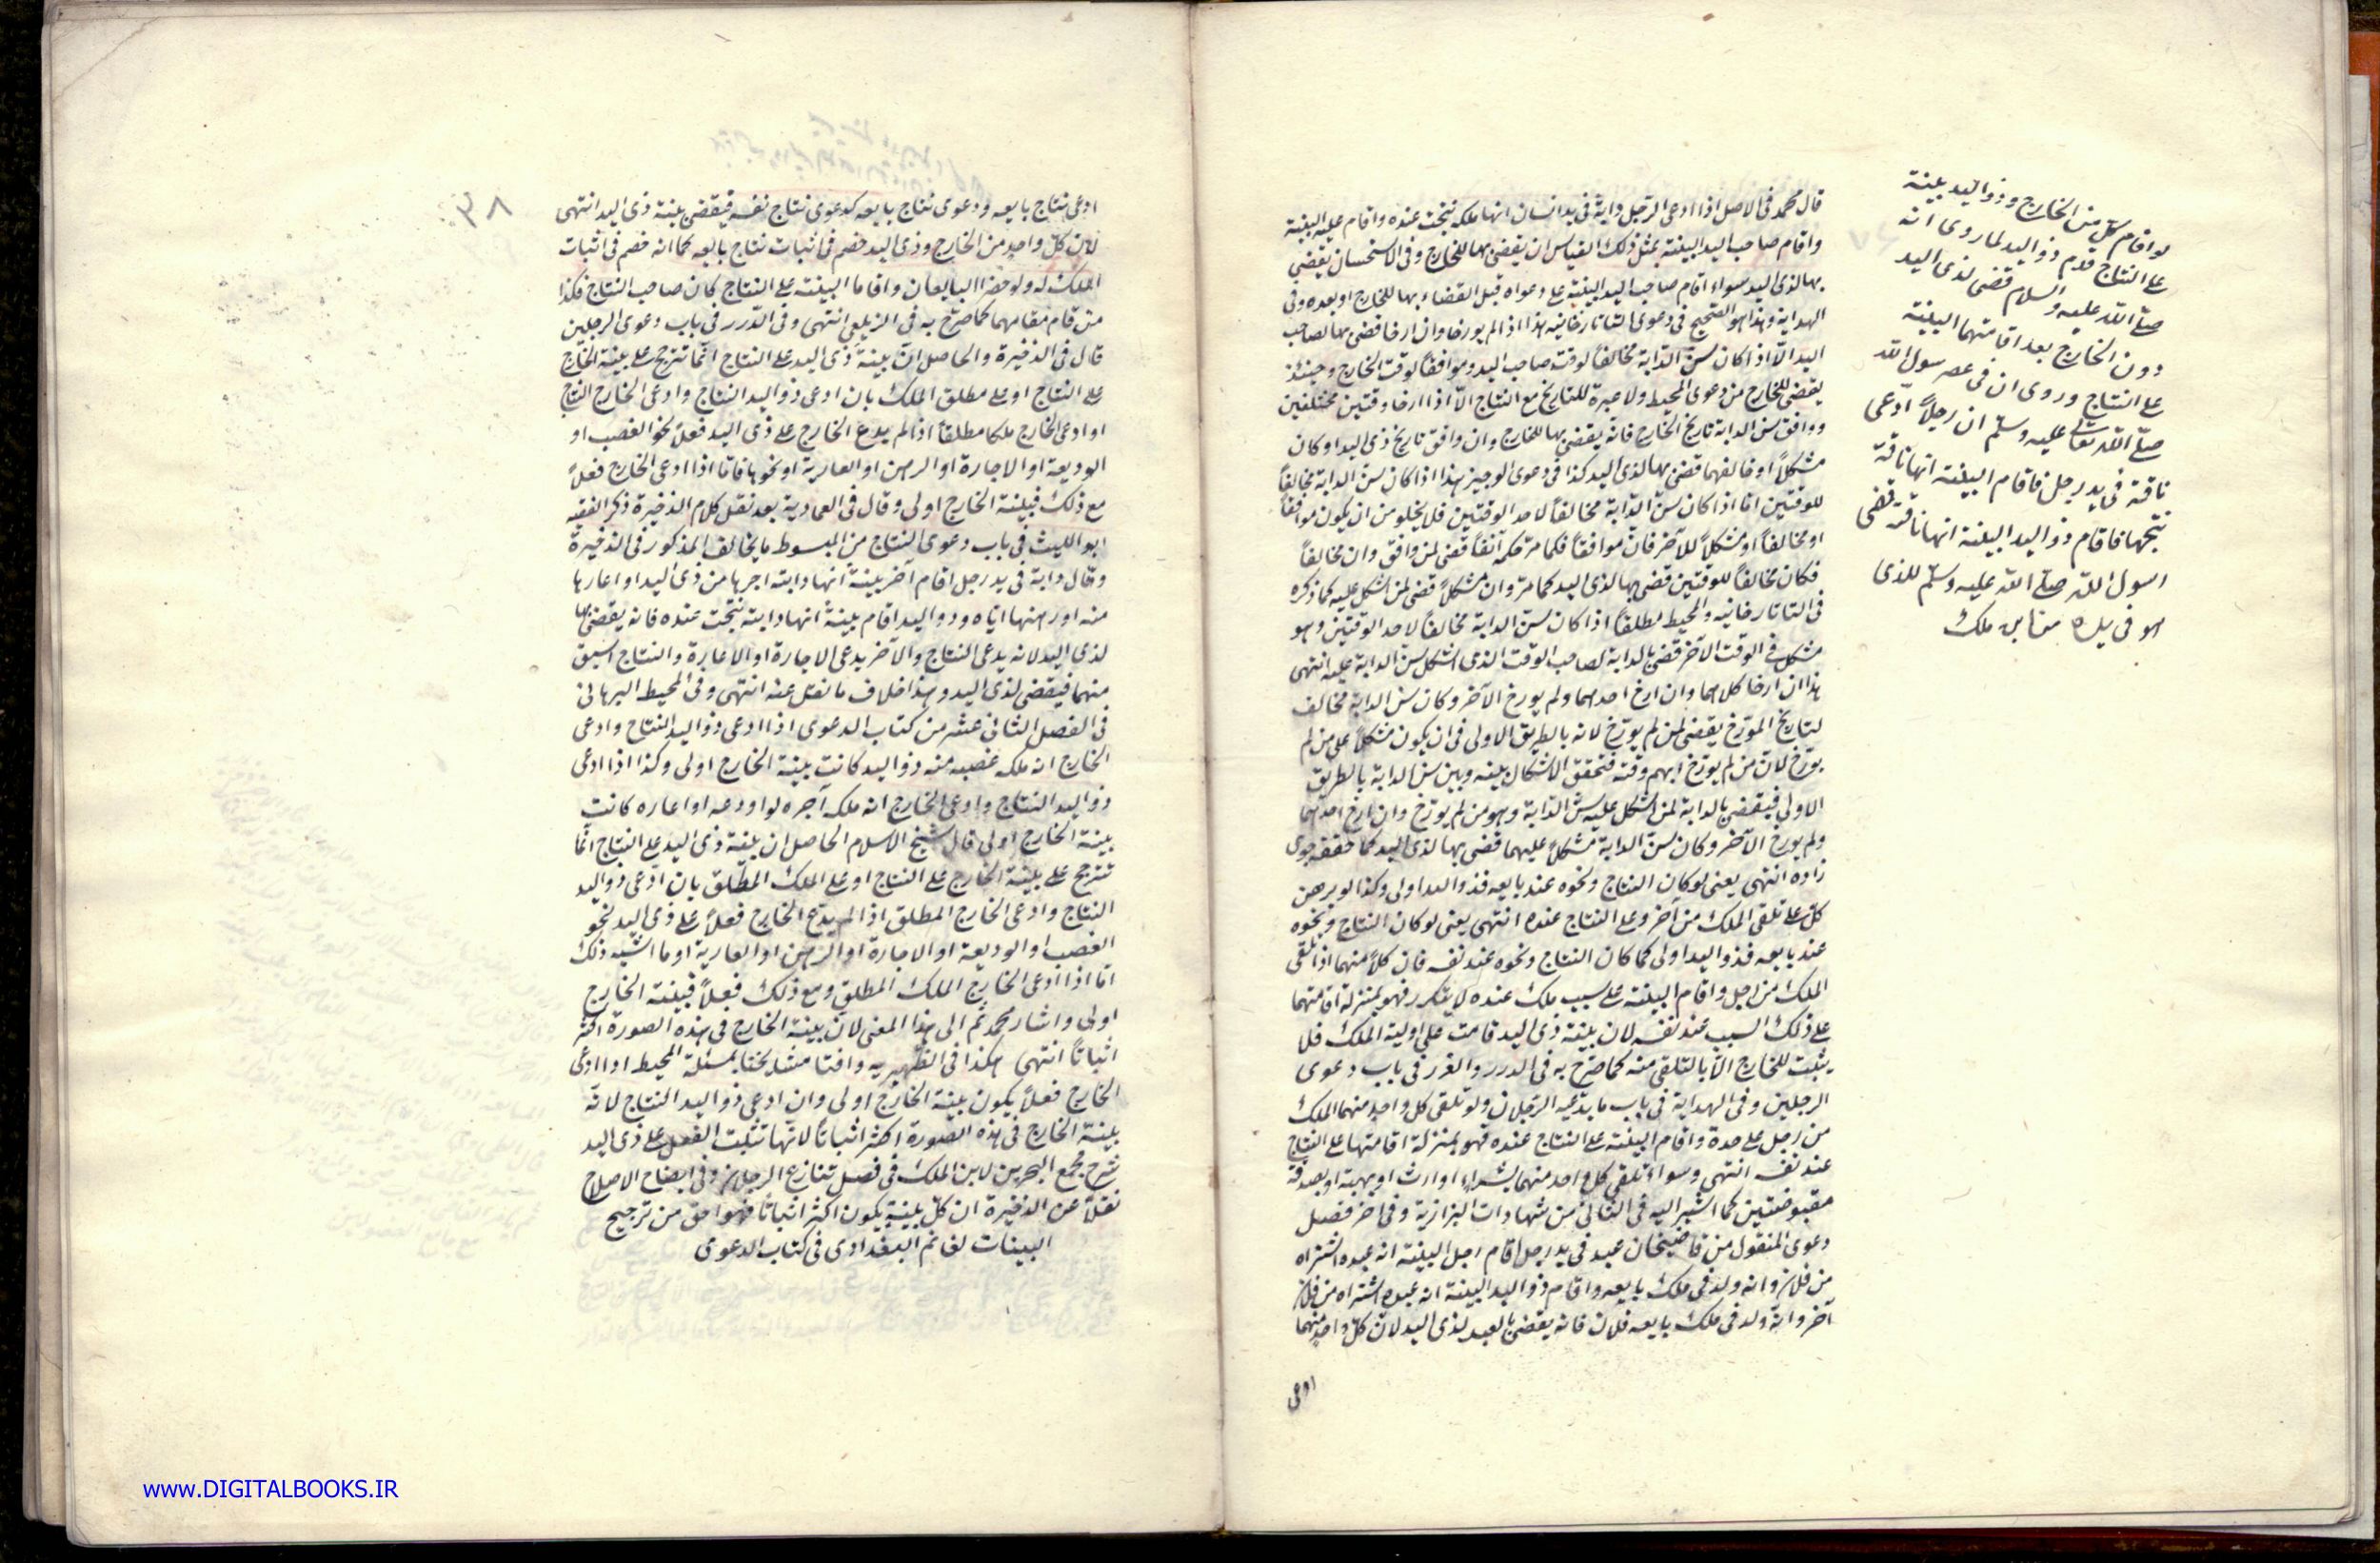 قال محمد فى الاصل اذا ادعى الرجل دابة فى يد انسان انها ملكه نتجت عنده واقام عليه البينة
واقام صاحب اليد البينة بمثل ذلك القياس ان يقضى بها للخارج وفى الاستحسان يقضى
بها لذى اليد سواء اقام صاحب اليد البينة على دعواه قبل القضاء بها للخارج او بعده وفى
الهداية وهذا هو الصحيح فى دعوى التاتارخانيه هذا اذا لم يورخا وان ارخا قضى بها لصاحب
اليد الا اذا كان سن الدابة مخالفاً لوقت صاحب اليد وموافقاً لوقت الخارج وحينئذ
يقضى للخارج من دعوى المحيط ولا عبرة للتاريخ مع النتاج الا اذا ارخا وقتين مختلفين
ووافق سن الدابة تاريخ الخارج فانه يقضى بها للخارج وان وافق تاريخ ذى اليد او كان
مشكلاً او خالفهما قضى بها لذى اليد كذا فى دعوى الوجيز هذا اذا كان سن الدابة مخالفاً
للوقتين اما اذا كان سن الدابة مخالفاً لاحد الوقتين فلا يخلو من ان يكون موافقاً
او مخالفاً او مشكلاً للآخر فان موافقاً فكما مر حكمه آنفاً قضى لمن وافق وان مخالفاً
فكان مخالفاً للوقتين قضى بها لذى اليد كما مر وان مشكلاً قضى لمن اشكل عليه كما ذكره
فى التاتارخانيه والمحيط مطلقاً اذا كان سن الدابة مخالفاً لاحد الوقتين وهو
مشكل فى الوقت الآخر قضى بالدابة لصاحب الوقت الذى اشكل سن الدابة عليه انتهى
هذا ان ارخا كلاهما وان ارخ احدهما ولم يورخ الآخر وكان سن الدابة مخالف
لتاريخ المورخ يقضى لمن لم يورخ لانه بالطريق الاولى فى ان يكون مشكلاً على من لم
يورخ لان من لم يورخ ابهم وقته فتحقق الاشكال بينه وبين سن الدابة بالطريق
الاولى فيقضى بالدابة لمن اشكل عليه سن الدابة وهو من لم يورخ وان ارخ احدهما
ولم يورخ الآخر وكان سن الدابة مشكلاً عليهما قضى بها لذى اليد كما حققه جوى
زاده انتهى يعنى لو كان النتاج ونحوه عند بايعه فذو اليد اولى وكذا لو برهن
كل على تلقى الملك من آخر وعلى النتاج عنده انتهى يعنى لو كان النتاج ونحوه
عند بايعه فذو اليد اولى كما كان النتاج ونحوه عند نفسه فان كلاً منهما اذا تلقى
الملك من رجل واقام البينة على سبب ملك عنده لا يتكرر فهو بمنزلة اقامتهما
على ذلك السبب عند نفسه لان بينة ذى اليد قامت على اولية الملك فلا
يثبت للخارج الا بالتلقى منه كما صرح به فى الدرر والغرر فى باب دعوى
الرجلين وفى الهداية فى باب ما يدعيه الرجلان ولو تلقى كل واحد منهما الملك
من رجل على حدة واقام البينة على النتاج عنده فهو بمنزلة اقامتها على النتاج
عند نفسه انتهى وسواء تلقى كل واحد منهما بشراء او ارث او بهبة او بصدقة
مقبوضتين كما اشير اليه فى الثانى من شهادات البزازية وفى آخر فصل
دعوى المنقول من قاضيخان عبد فى يد رجل اقام رجل البينة انه عبده اشتراه
من فلان وانه ولد فى ملك بايعه واقام ذو اليد البينة انه عبده اشتراه من فلان
آخر وانه ولد فى ملك بايعه فلان فانه يقضى بالعبد لذى اليد لان كل واحد منهما
ادعى
لو اقام كل من الخارج وذو اليد بينة
على النتاج قدم ذو اليد لما روى انه
صلى الله عليه والسلام قضى لذى اليد
دون الخارج بعد اقامتهما البينة
على النتاج وروى ان فى عصر رسول الله
صلى الله تعالى عليه وسلم ان رجلاً ادعى
ناقة فى يد رجل فاقام البينة انها ناقة
نتجها فاقام ذو اليد البينة انها ناقته قضى
رسول الله صلى الله عليه وسلم للذى
هو فى يده من ابن ملك
٣٨
ادعى نتاج بايعه ودعوى نتاج بايعه كدعوى نتاج نفسه فيقضى ببينة ذى اليد انتهى
لان كل واحد من الخارج وذى اليد خصم فى اثبات نتاج بايعه كما انه خصم فى اثبات
الملك له ولو حضرا البايعان واقاما البينة على النتاج كان صاحب النتاج فكذا
من قام مقامهما كما صرح به فى الزيلعى انتهى وفى الدرر فى باب دعوى الرجلين
قال فى الذخيرة والحاصل ان بينة ذى اليد على النتاج انما تترجح على بينة الخارج
على النتاج او على مطلق الملك بان ادعى ذو اليد النتاج وادعى الخارج النتاج
او ادعى الخارج ملكا مطلقاً اذا لم يدع الخارج على ذى اليد فعلاً نحو الغصب او
الوديعة او الاجارة او الرهن او العارية او نحوها فاما اذا ادعى الخارج فعلاً
مع ذلك فبينة الخارج اولى وقال فى العمادية بعد نقل كلام الذخيرة ذكر الفقيه
ابو الليث فى باب دعوى النتاج من المبسوط ما يخالف المذكور فى الذخيرة
وقال دابة فى يد رجل اقام آخر بينة انها دابته اجرها من ذى اليد او اعارها
منه او رهنها اياه وذو اليد اقام بينة انها دابته نتجت عنده فانه يقضى بها
لذى اليد لانه يدعى النتاج والآخر يدعى الاجارة او الاعارة والنتاج اسبق
منهما فيقضى لذى اليد وهذا خلاف ما نقل عنه انتهى وفى المحيط البرهانى
فى الفصل الثانى عشر من كتاب الدعوى اذا ادعى ذو اليد النتاج وادعى
الخارج انه ملكه غصبه منه ذو اليد كانت بينة الخارج اولى وكذا اذا ادعى
ذو اليد النتاج وادعى الخارج انه ملكه آجره او اودعه او اعاره كانت
بينة الخارج اولى قال شيخ الاسلام الحاصل ان بينة ذى اليد على النتاج انما
تترجح على بينة الخارج على النتاج او على الملك المطلق بان ادعى ذو اليد
النتاج وادعى الخارج المطلق اذا لم يدع الخارج فعلاً على ذى اليد نحو
الغصب او الوديعة او الاجارة او الرهن او العارية او ما اشبه ذلك
اما اذا ادعى الخارج الملك المطلق ومع ذلك فعلاً فبينة الخارج
اولى واشار محمد ثم الى هذا المعنى لان بينة الخارج فى هذه الصورة اكثر
اثباتاً انتهى هكذا فى الظهيريه وافتا مشايخنا بمسئلة المحيط اذا ادعى
الخارج فعلاً يكون بينة الخارج اولى وان ادعى ذو اليد النتاج لانه
بينة الخارج فى هذه الصورة اكثر اثباتاً لانها تثبت الفعل على ذى اليد
شرح مجمع البحرين لابن الملك فى فصل تنازع الرجلان وفى ايضاح الاصلاح
نقلاً عن الذخيرة ان كل بينة يكون اكثر اثباتاً فهو احق من ترجيح
البينات لغانم البغدادى فى كتاب الدعوى
www.DIGITALBOOKS.IR